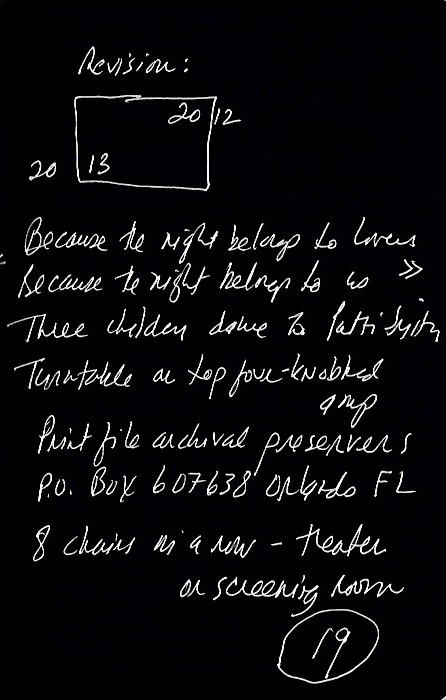 Revision:
20 12
20 13
Because the night belongs to lovers
Because the night belongs to us »
Three children dance to Patti Smith
Turntable on top four-knobbed
amp
Print file archival preservers
P.O. Box 607638 Orlando FL
8 chairs in a row - theater
or screening room
19